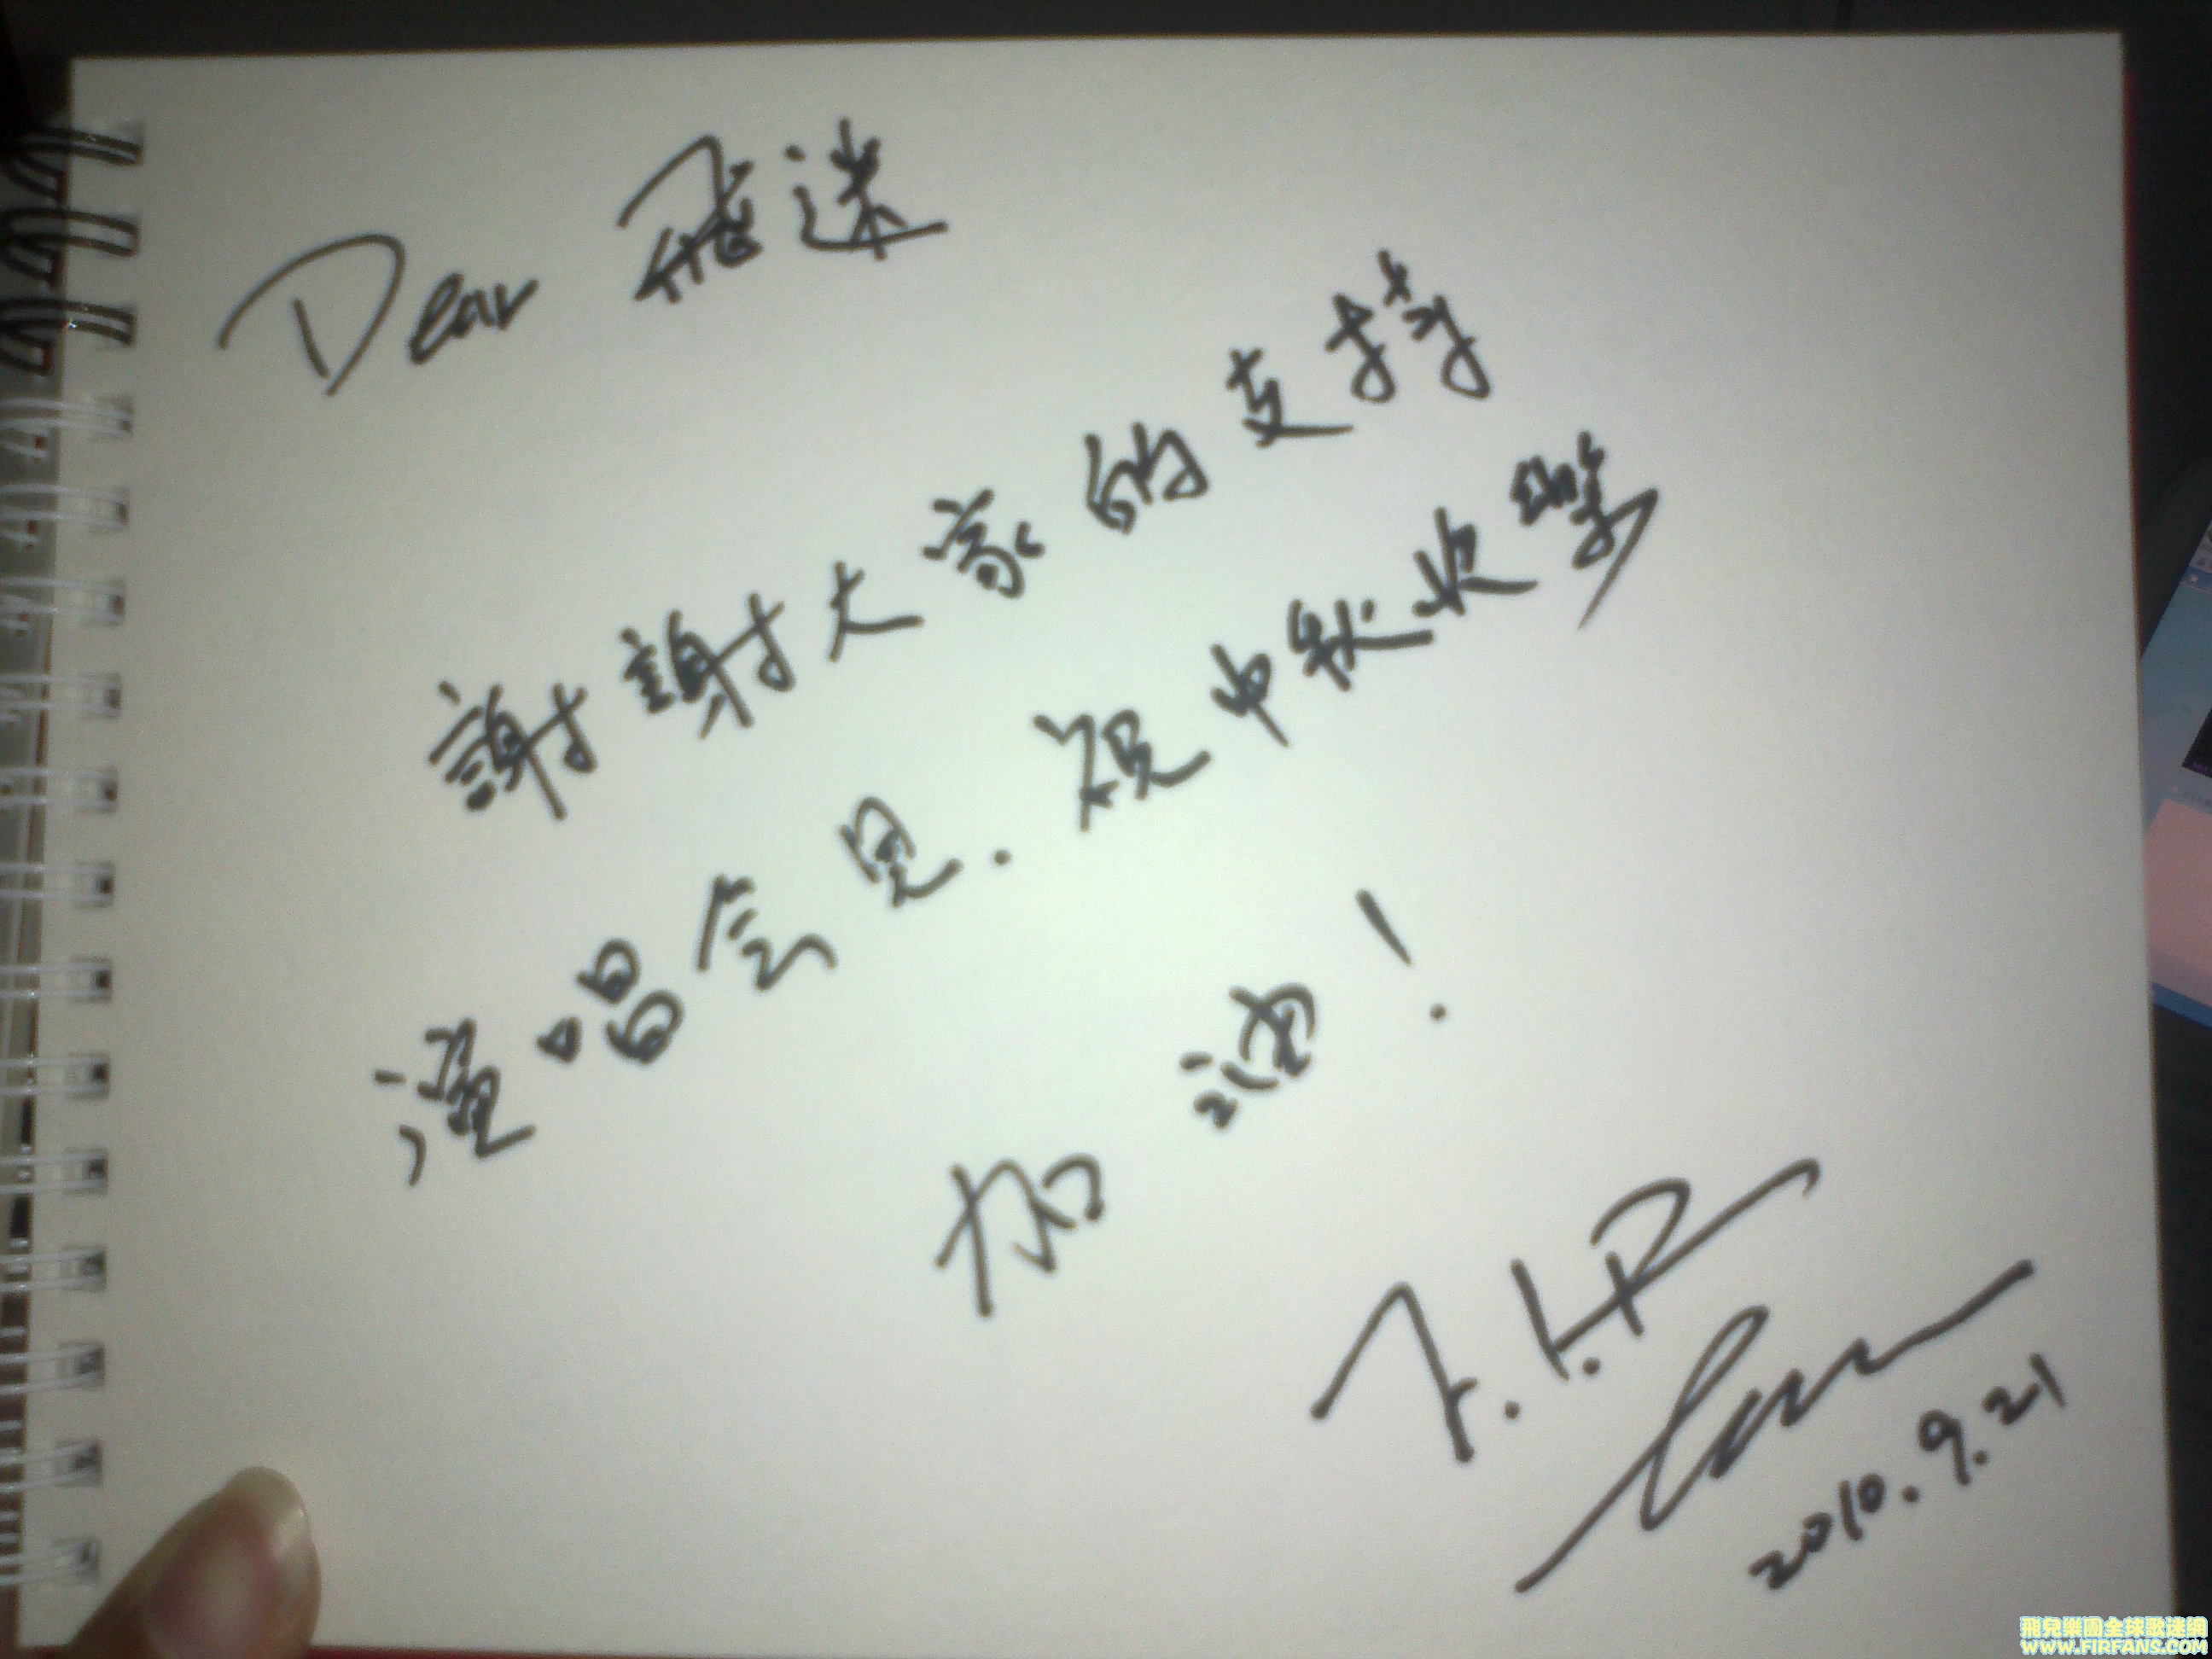 Dear 飛迷
謝謝大家的支持
演唱会見. 祝中秋快樂
加油!
F.I.R
2010.9.21
飛兒樂團全球歌迷網
WWW.FIRFANS.COM